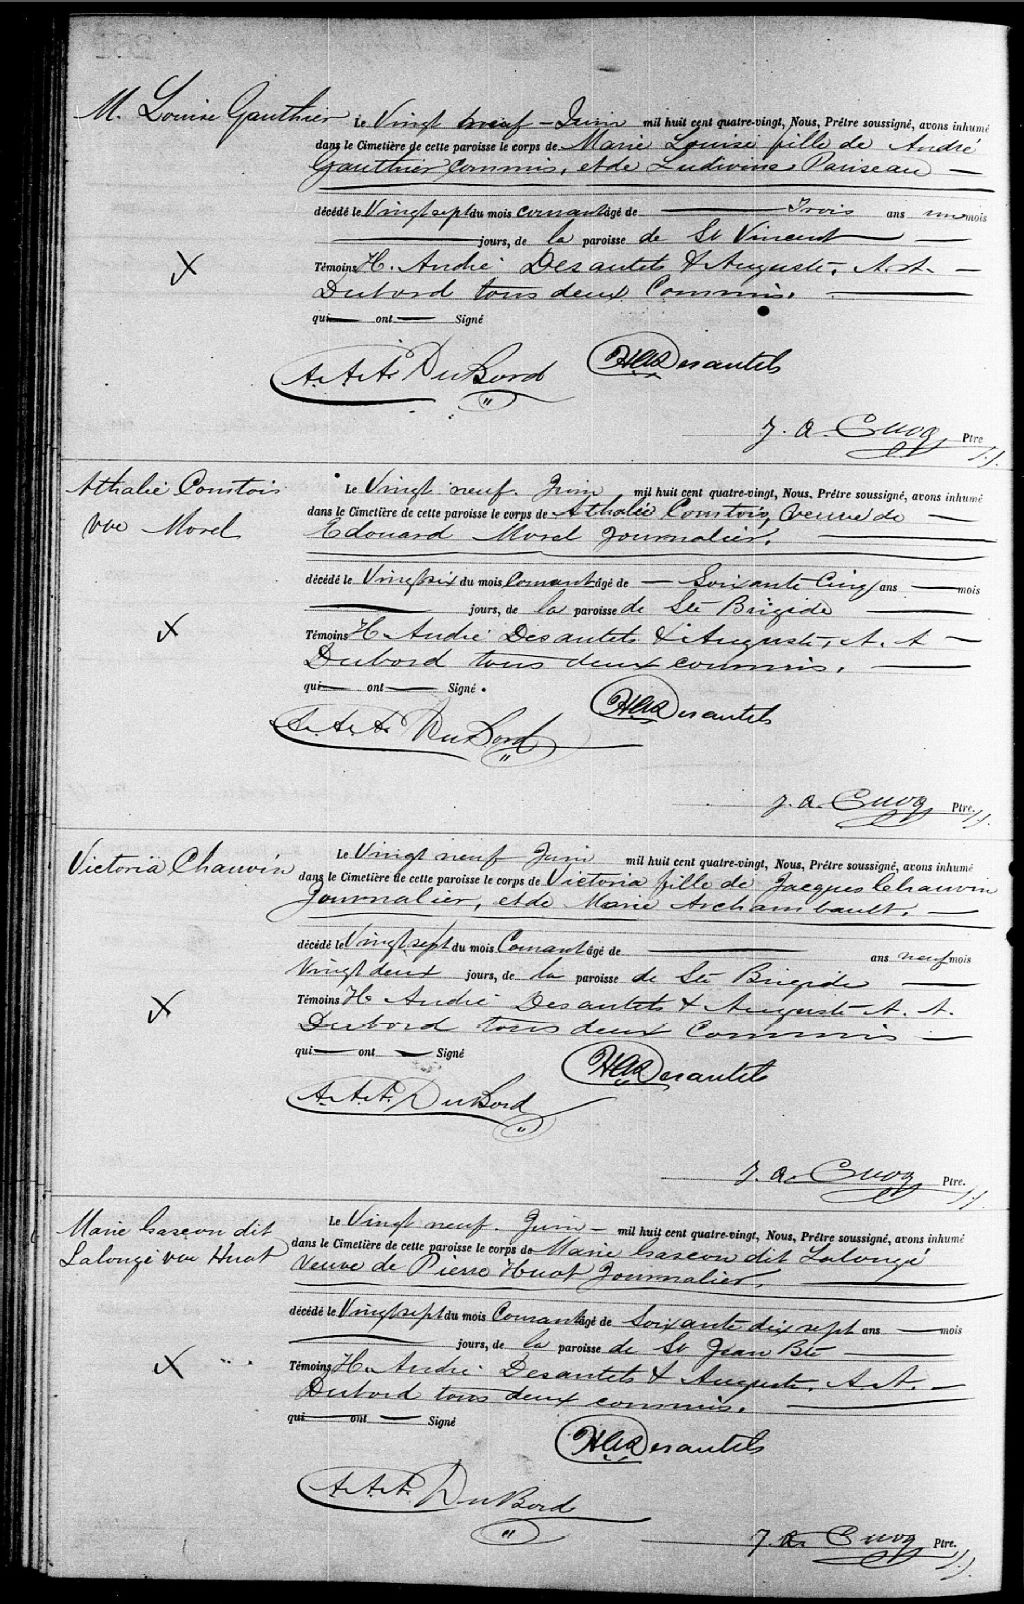 M. Louise Gauthier
Le Vingt neuf - Juin mil huit cent quatre-vingt, Nous, Prêtre soussigné, avons inhumé
dans le Cimetière de cette paroisse le corps de Marie Louise fille de André
Gauthier commis, et de Ludivine Pariseau
décédé le Vingt sept du mois courant âgé de Trois ans un mois
jours, de la paroisse de St Vincent
Témoins H. André Desautels & Auguste, A. A.
Dubord tous deux Commis.
qui ont Signé
A. A. A. DuBord HADesautels
J. A. Cuoq Ptre
Athalie Comtois
vve Morel
Le Vingt neuf. Juin mil huit cent quatre-vingt, Nous, Prêtre soussigné, avons inhumé
dans le Cimetière de cette paroisse le corps de Athalie Comtois, veuve de
Edouard Morel Journalier.
décédé le Vingt six du mois Courant âgé de Soixante Cinq ans mois
jours, de la paroisse de Ste Brigide
Témoins H. André Desautels & Auguste, A. A
Dubord tous deux commis.
qui ont Signé.
A. A. A. DuBord HADesautels
J. A. Cuoq Ptre.
Victoria Chauvin
Le Vingt neuf Juin mil huit cent quatre-vingt, Nous, Prêtre soussigné, avons inhumé
dans le Cimetière de cette paroisse le corps de Victoria fille de Jacques Chauvin
Journalier, et de Marie Archambault.
décédé le Vingt sept du mois Courant âgé de ans neuf mois
Vingt deux jours, de la paroisse de Ste Brigide
Témoins H. André Desautels & Auguste A. A.
Dubord tous deux Commis
qui ont Signé
A. A. A. DuBord HADesautels
J. A. Cuoq Ptre.
Marie Gascon dit
Lalongé vve Huot
Le Vingt neuf. Juin - mil huit cent quatre-vingt, Nous, Prêtre soussigné, avons inhumé
dans le Cimetière de cette paroisse le corps de Marie Gascon dit Lalongé
Veuve de Pierre Huot Journalier.
décédé le Vingt sept du mois Courant âgé de Soixante dix sept ans mois
jours, de la paroisse de St Jean Bte
Témoins H. André Desautels & Auguste. A. A.
Dubord tous deux commis.
qui ont Signé
A. A. A. DuBord HADesautels
J. A. Cuoq Ptre.